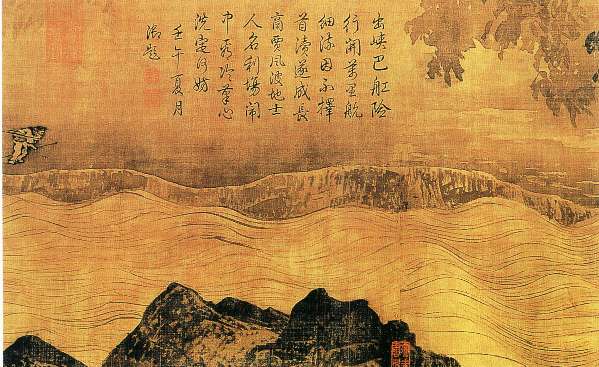 出峽巴舡險
行開萬里航
細流因不擇
首瀆遂成長
商賈風波地士
人名利場鬧
中冷筆心
洗何妨
壬午夏月
御題